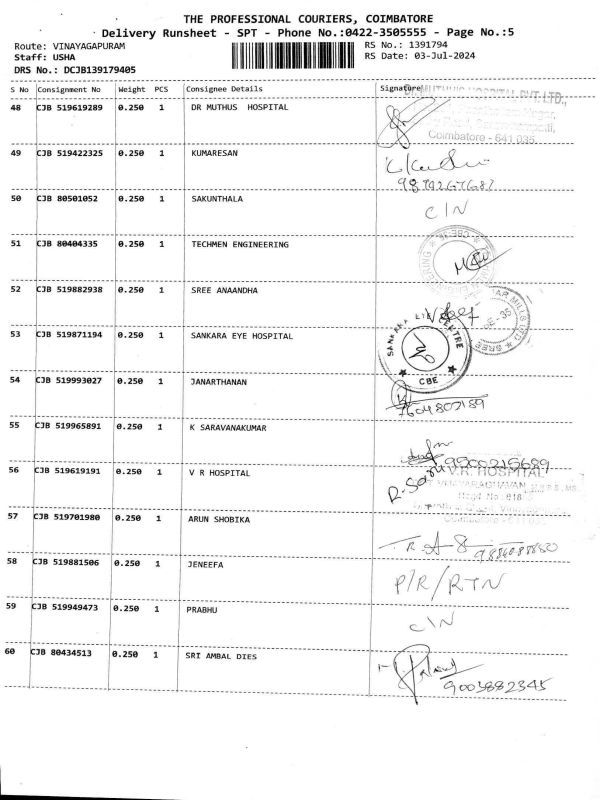 THE PROFESSIONAL COURIERS, COIMBATORE
Delivery Runsheet - SPT - Phone No.:0422-3505555 - Page No.:5
Route: VINAYAGAPURAM RS No.: 1391794
Staff: USHA RS Date: 03-Jul-2024
DRS No.: DCJB139179405
S No Consignment No Weight PCS Consignee Details Signature
48 CJB 519619289 0.250 1 DR MUTHUS HOSPITAL
Coimbatore - 641 035.
49 CJB 519422325 0.250 1 KUMARESAN
50 CJB 80501052 0.250 1 SAKUNTHALA C/N
51 CJB 80404335 0.250 1 TECHMEN ENGINEERING
52 CJB 519882938 0.250 1 SREE ANAANDHA
53 CJB 519871194 0.250 1 SANKARA EYE HOSPITAL
SANKARA EYE CENTRE
CBE
54 CJB 519993027 0.250 1 JANARTHANAN
7604802189
55 CJB 519965891 0.250 1 K SARAVANAKUMAR
9500215689
56 CJB 519619191 0.250 1 V R HOSPITAL
V.R. HOSPITAL
57 CJB 519701980 0.250 1 ARUN SHOBIKA
58 CJB 519881506 0.250 1 JENEEFA P/R/RTN
59 CJB 519949473 0.250 1 PRABHU C/N
60 CJB 80434513 0.250 1 SRI AMBAL DIES
9003882345